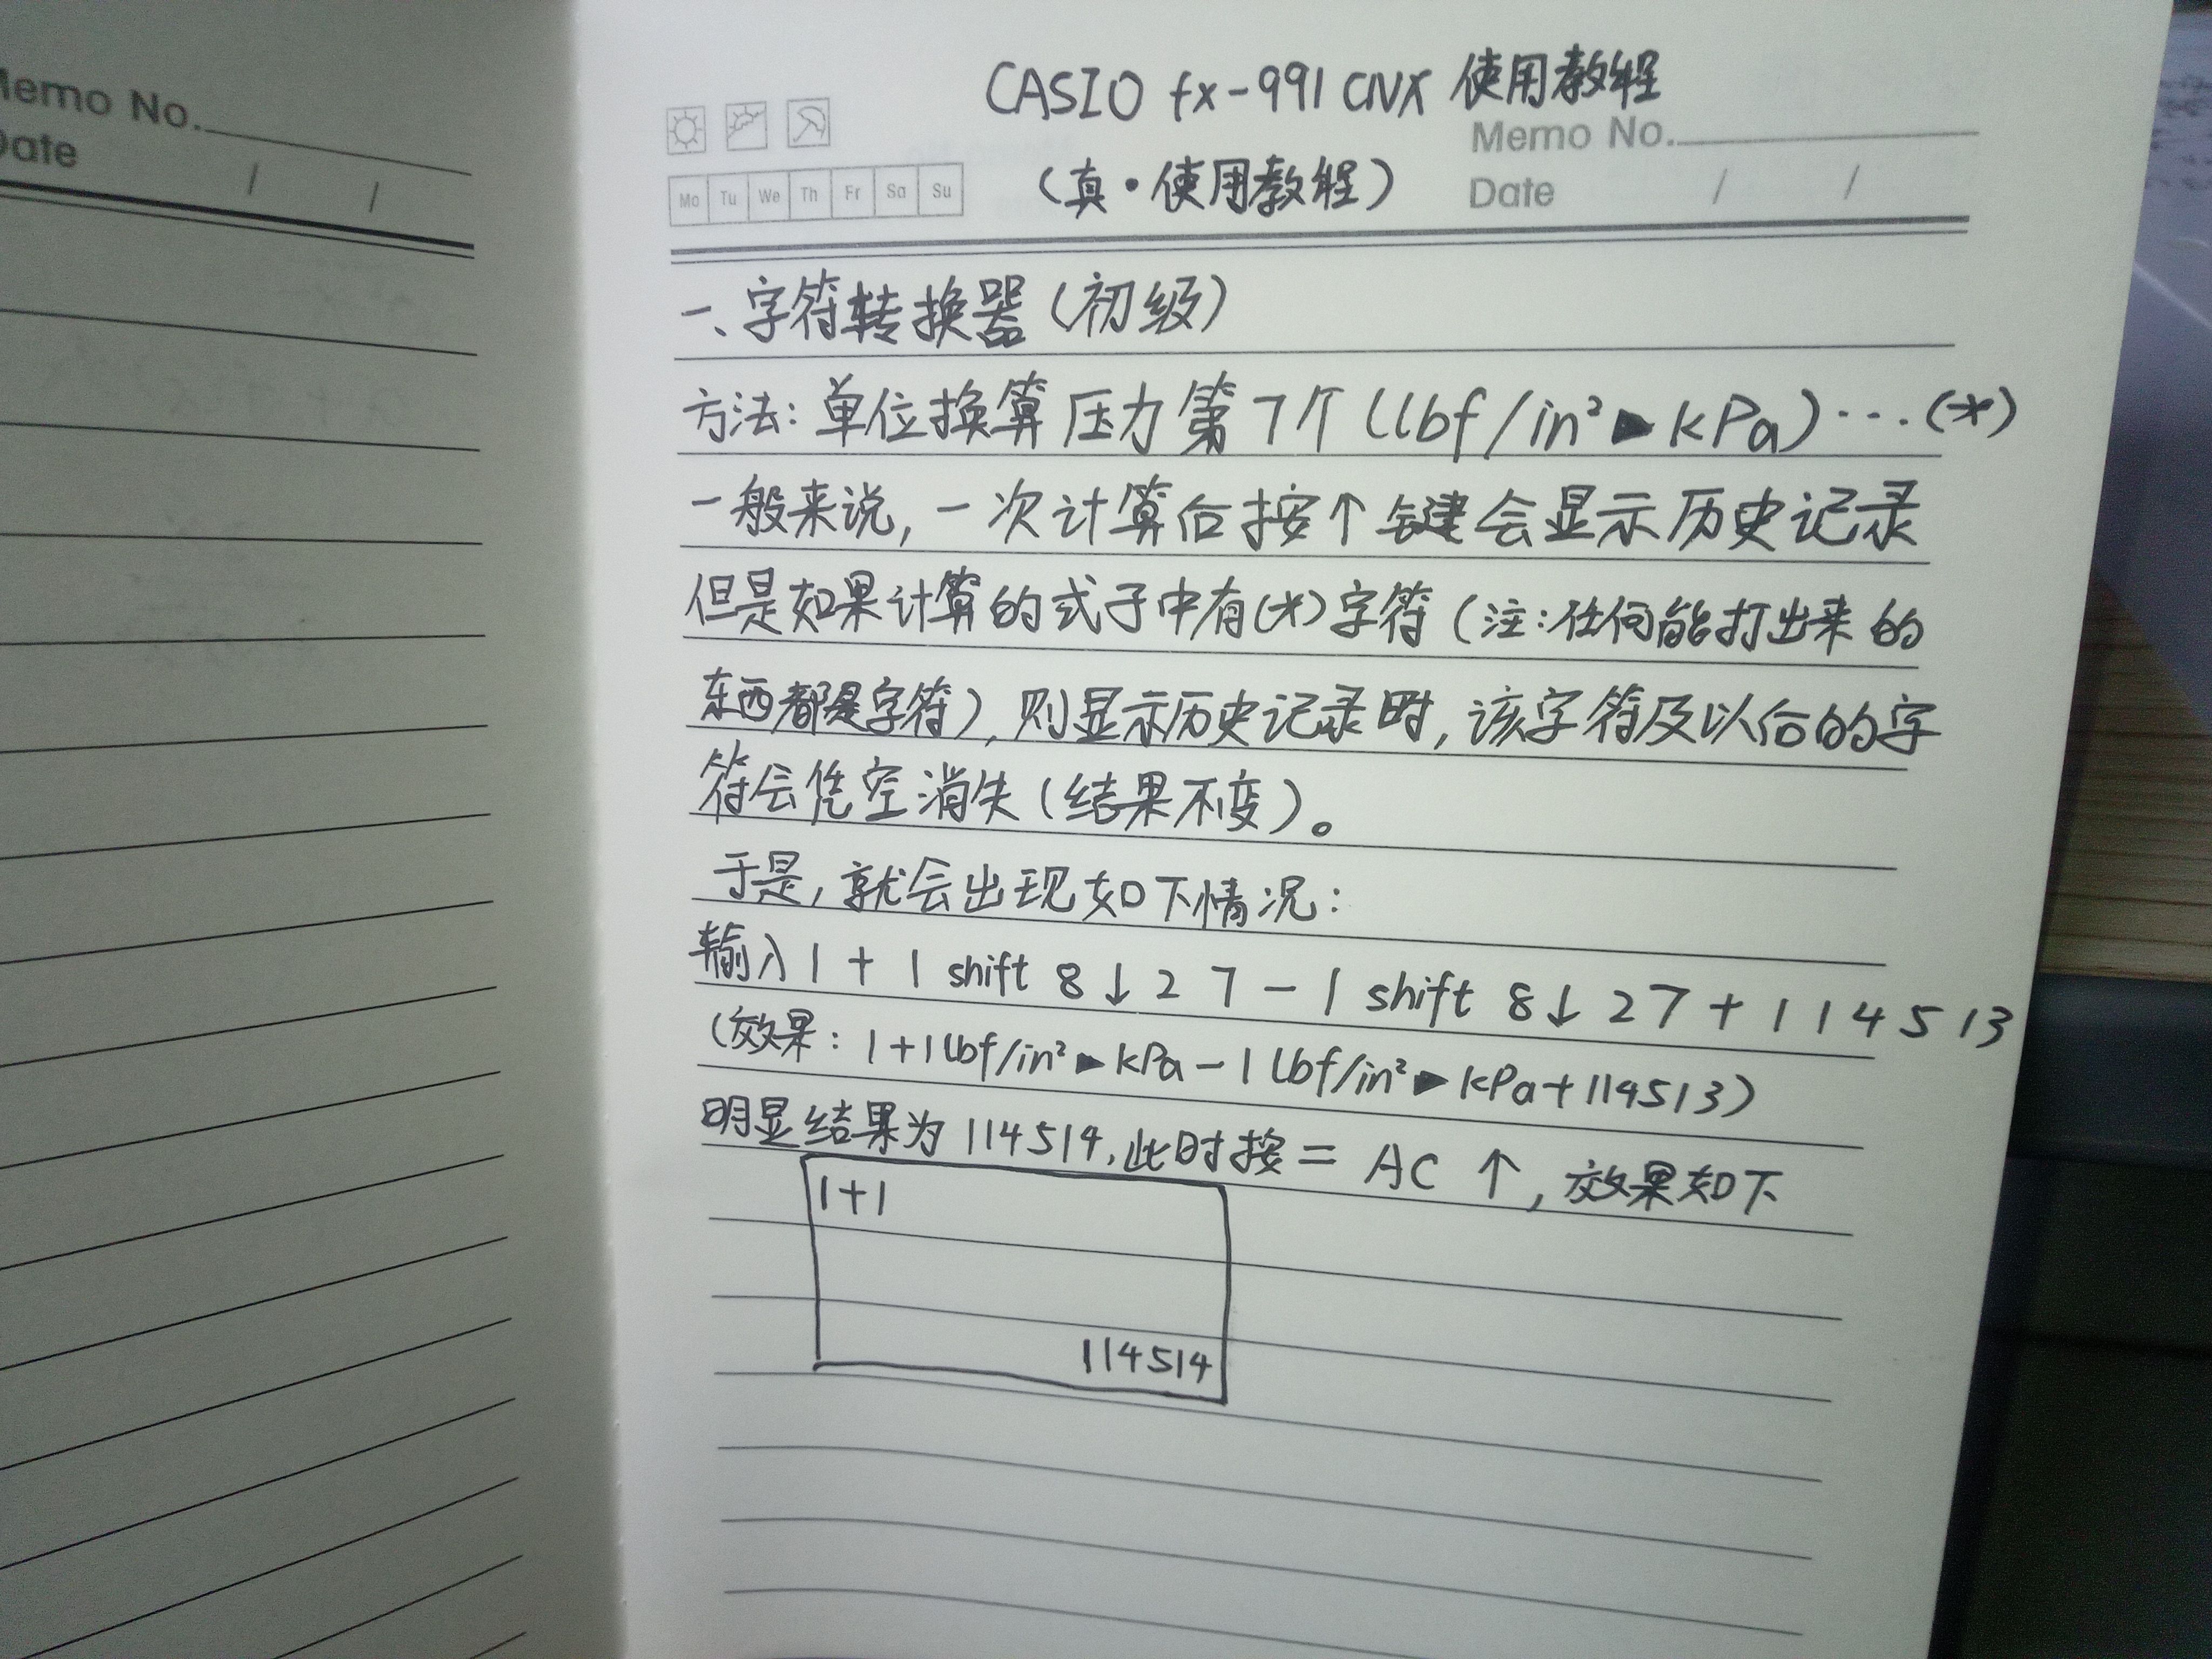 Memo No.
Date / /
CASIO fx-991 CNX 使用教程
Memo No.
(真·使用教程)
Mo Tu We Th Fr Sa Su
Date / /
一、字符转换器(初级)
方法:单位换算 压力 第7个(lbf/in²▶kPa)…(*)
一般来说,一次计算后按↑键会显示历史记录
但是如果计算的式子中有(*)字符(注:任何能打出来的
东西都是字符),则显示历史记录时,该字符及以后的字
符会凭空消失(结果不变)。
于是,就会出现如下情况:
输入1+1 shift 8↓27-1 shift 8↓27+114513
(效果:1+1lbf/in²▶kPa-1lbf/in²▶kPa+114513)
明显结果为114514,此时按= AC ↑,效果如下
1+1
114514